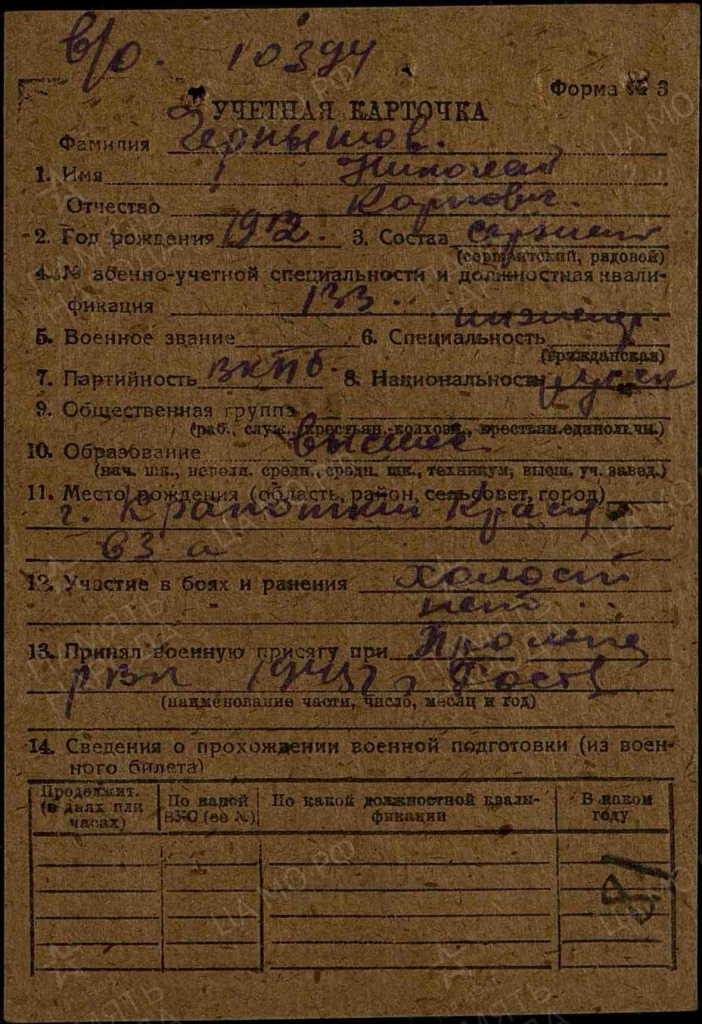 в/о. 10394
Форма № 3
УЧЕТНАЯ КАРТОЧКА
Фамилия Чернышов.
1. Имя Николай
Отчество Карпович.
2. Год рождения 1912. 3. Состав сержант
(сержантский, рядовой)
4. № военно-учетной специальности и должностная квали-
фикация 133
5. Военное звание 6. Специальность инженер.
(гражданская)
7. Партийность ВКПб. 8. Национальность русск
9. Общественная группа
(раб., служ., крестьян.-колхозн., крестьян.единоличн.)
10. Образование высшее
(нач. шк., неполн. средн., средн. шк., техникум, высш. уч. завед.)
11. Место рождения (область, район, сельсовет, город)
г. Кропоткин Красн
12. Участие в боях и ранения холост
нет
13. Принял военную присягу при Пролет
рвк г. Рост
(наименование части, число, месяц и год)
14. Сведения о прохождении военной подготовки (из воен-
ного билета)
Продолжит. (в днях или часах) По какой ВУС (ее №) По какой должностной квали-фикации В каком году